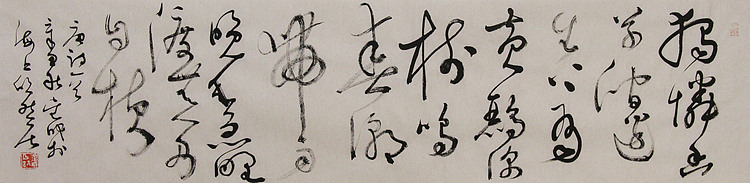 獨憐幽
草澗邊
生上有
黄鸝深
樹鳴
春潮
帶雨
晚來急野
渡無人舟
自橫
唐詩一首
辛卯秋
海上